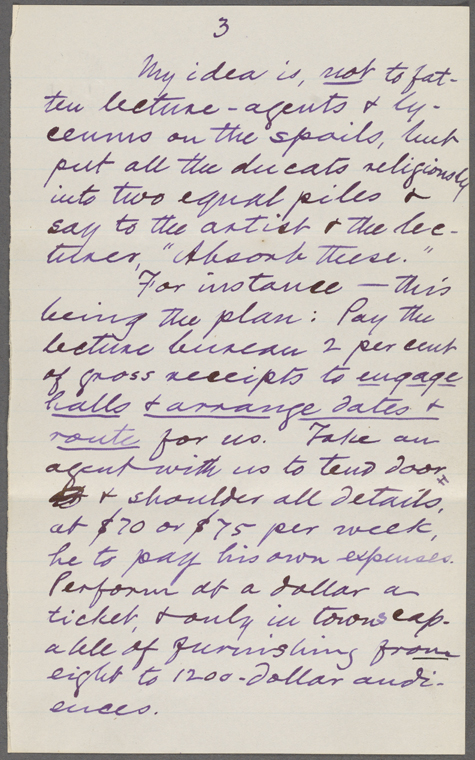 3
My idea is, not to fat-
ten lecture-agents & ly-
ceums on the spoils, but
put all the ducats religiously
into two equal piles &
say to the artist & the lec-
turer, "Absorb these."
For instance — this
being the plan: Pay the
lecture bureau 2 per cent
of gross receipts to engage
halls & arrange dates &
route for us. Take an
agent with us to tend door,
& shoulder all details,
at $70 or $75 per week,
he to pay his own expenses.
Perform at a dollar a
ticket, & only in towns cap-
able of furnishing from
eight to 1200-dollar audi-
ences.